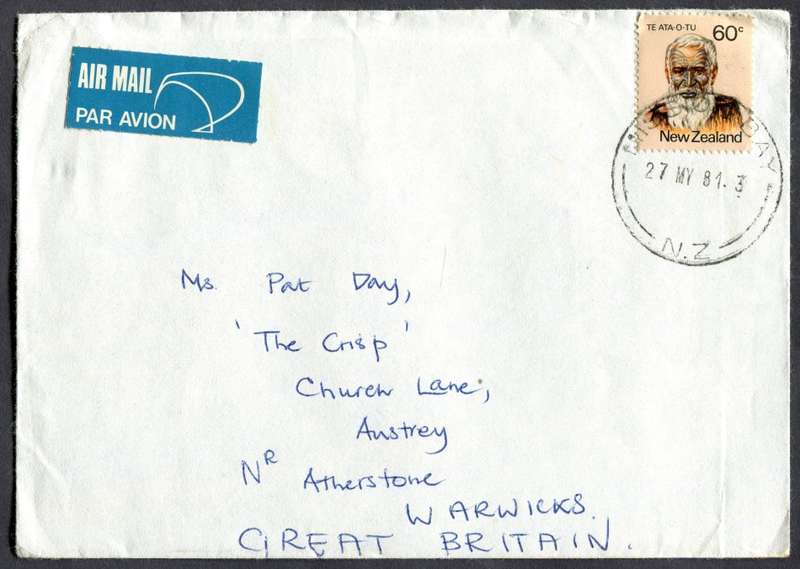 AIR MAIL
PAR AVION
TE ATA-O-TU 60c
New Zealand
BAY
27 MY 81.3
N.Z
Ms Pat Day,
'The Crisp'
Church Lane,
Austrey
NR Atherstone
WARWICKS.
GREAT BRITAIN.